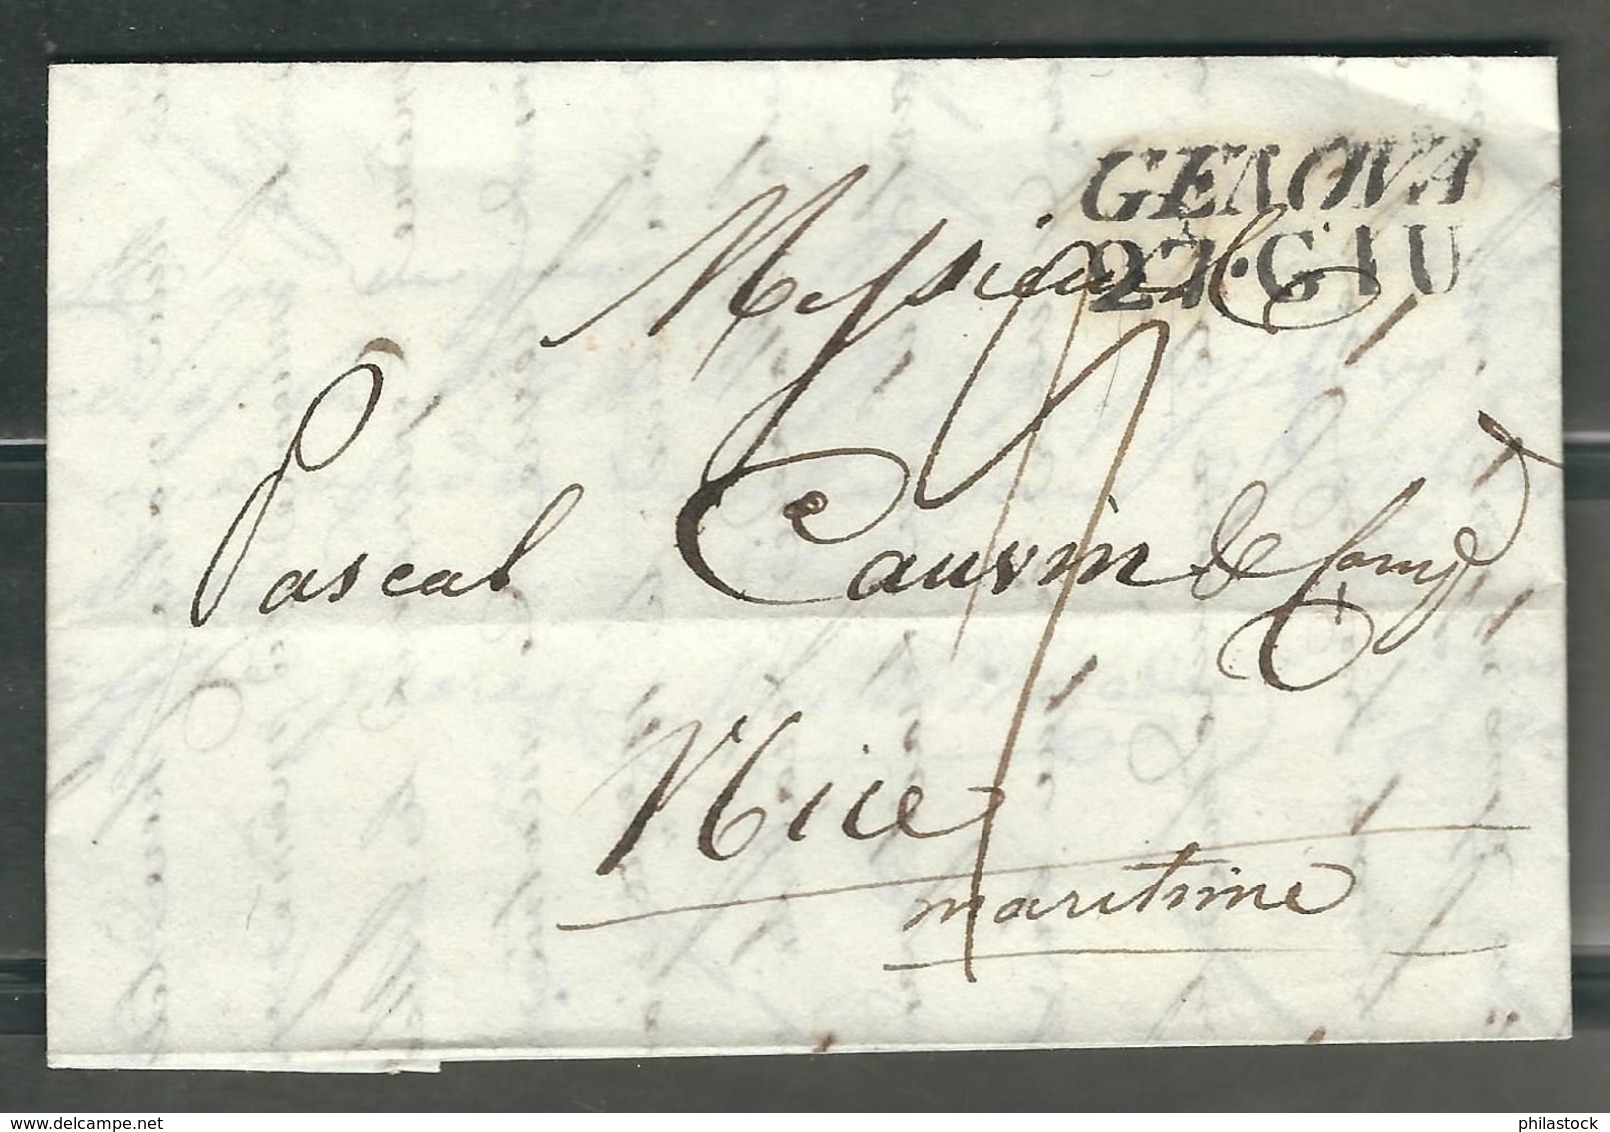 GENOVA
27·GIU
Messieurs
Pascal Cauvin & Comp.e
Nice
maritime
delcampe.net
philastock